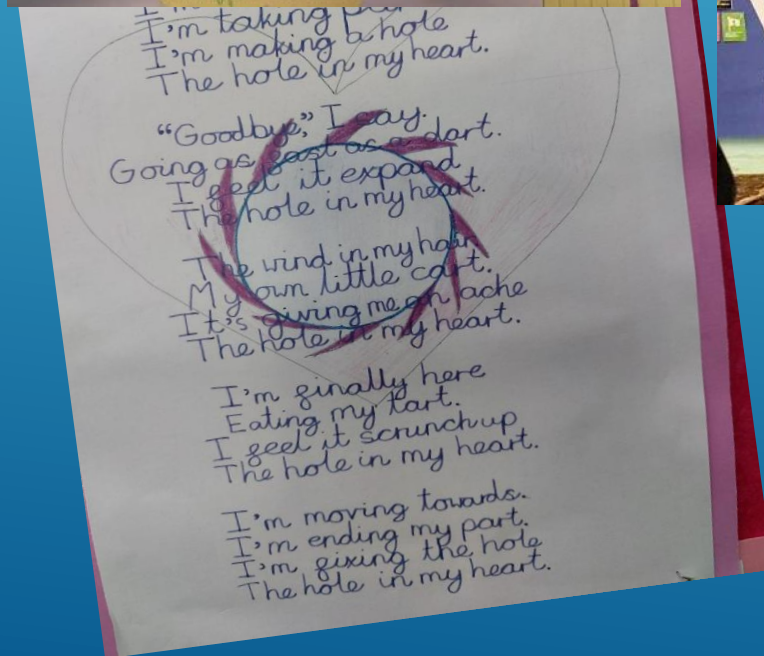 I'm
I'm taking
I'm making a hole
The hole in my heart.
“Goodbye,” I say.
Going as fast as a dart.
I feel it expand
The hole in my heart.
The wind in my hair
My own little cart.
It's giving me an ache
The hole in my heart.
I'm finally here
Eating my tart.
I feel it scrunch up
The hole in my heart.
I'm moving towards.
I'm ending my part.
I'm fixing the hole
The hole in my heart.